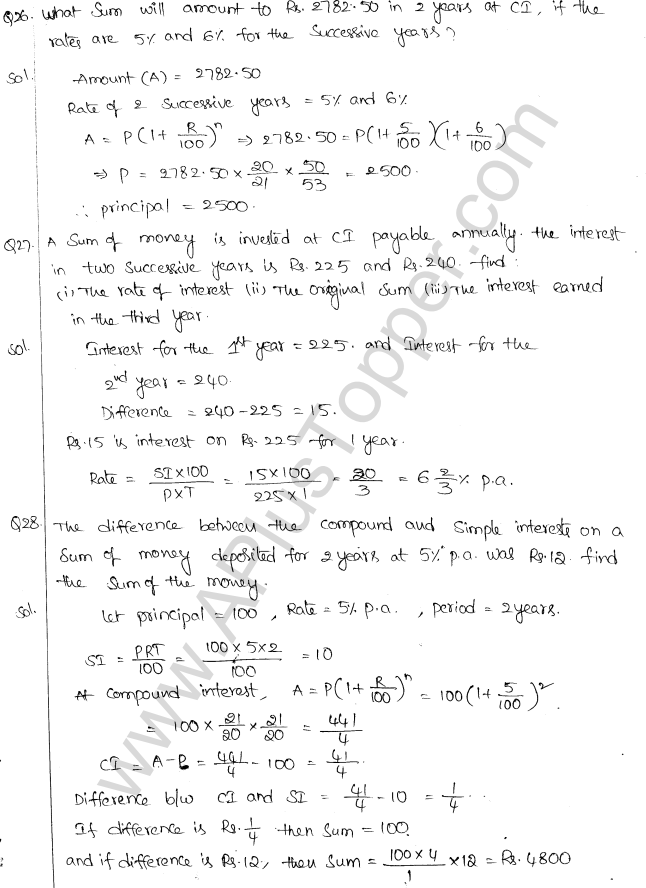 Q26. What Sum will amount to Rs. 2782.50 in 2 years at CI, if the
rates are 5% and 6% for the Successive years?
Sol. Amount (A) = 2782.50
Rate of 2 Successive years = 5% and 6%
A = P(1 + R/100)^n ⇒ 2782.50 = P(1 + 5/100)(1 + 6/100)
⇒ P = 2782.50 × 20/21 × 50/53 = 2500.
∴ principal = 2500.
Q27. A Sum of money is invested at CI payable annually. the interest
in two successive years is Rs. 225 and Rs. 240. find:
(i) The rate of interest (ii) The original sum (iii) The interest earned
in the third year.
Sol. Interest for the 1st year = 225. and Interest for the
2nd year = 240.
Difference = 240 - 225 = 15.
Rs. 15 is interest on Rs. 225 for 1 year.
Rate = SI×100/P×T = 15×100/225×1 = 20/3 = 6 2/3 % p.a.
Q28. The difference between the compound and Simple interests on a
Sum of money deposited for 2 years at 5% p.a. was Rs. 12. find
the Sum of the money.
Sol. let principal = 100, Rate = 5% p.a., period = 2 years.
SI = PRT/100 = 100×5×2/100 = 10
At compound interest, A = P(1 + R/100)^n = 100(1 + 5/100)^2.
= 100 × 21/20 × 21/20 = 441/4
CI = A-P = 441/4 - 100 = 41/4.
Difference b/w CI and SI = 41/4 - 10 = 1/4..
If difference is Rs. 1/4 then Sum = 100.
and if difference is Rs. 12, then Sum = 100×4/1 × 12 = Rs. 4800
www.APlusTopper.com